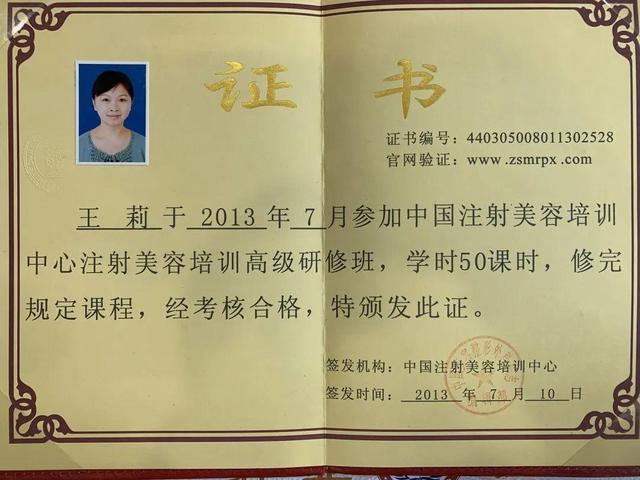 证书
证书编号：440305008011302528
官网验证：www.zsmrpx.com
王 莉 于 2013 年 7 月参加中国注射美容培训
中心注射美容培训高级研修班，学时50课时，修完
规定课程，经考核合格，特颁发此证。
签发机构：中国注射美容培训中心
签发时间：2013 年 7 月 10 日